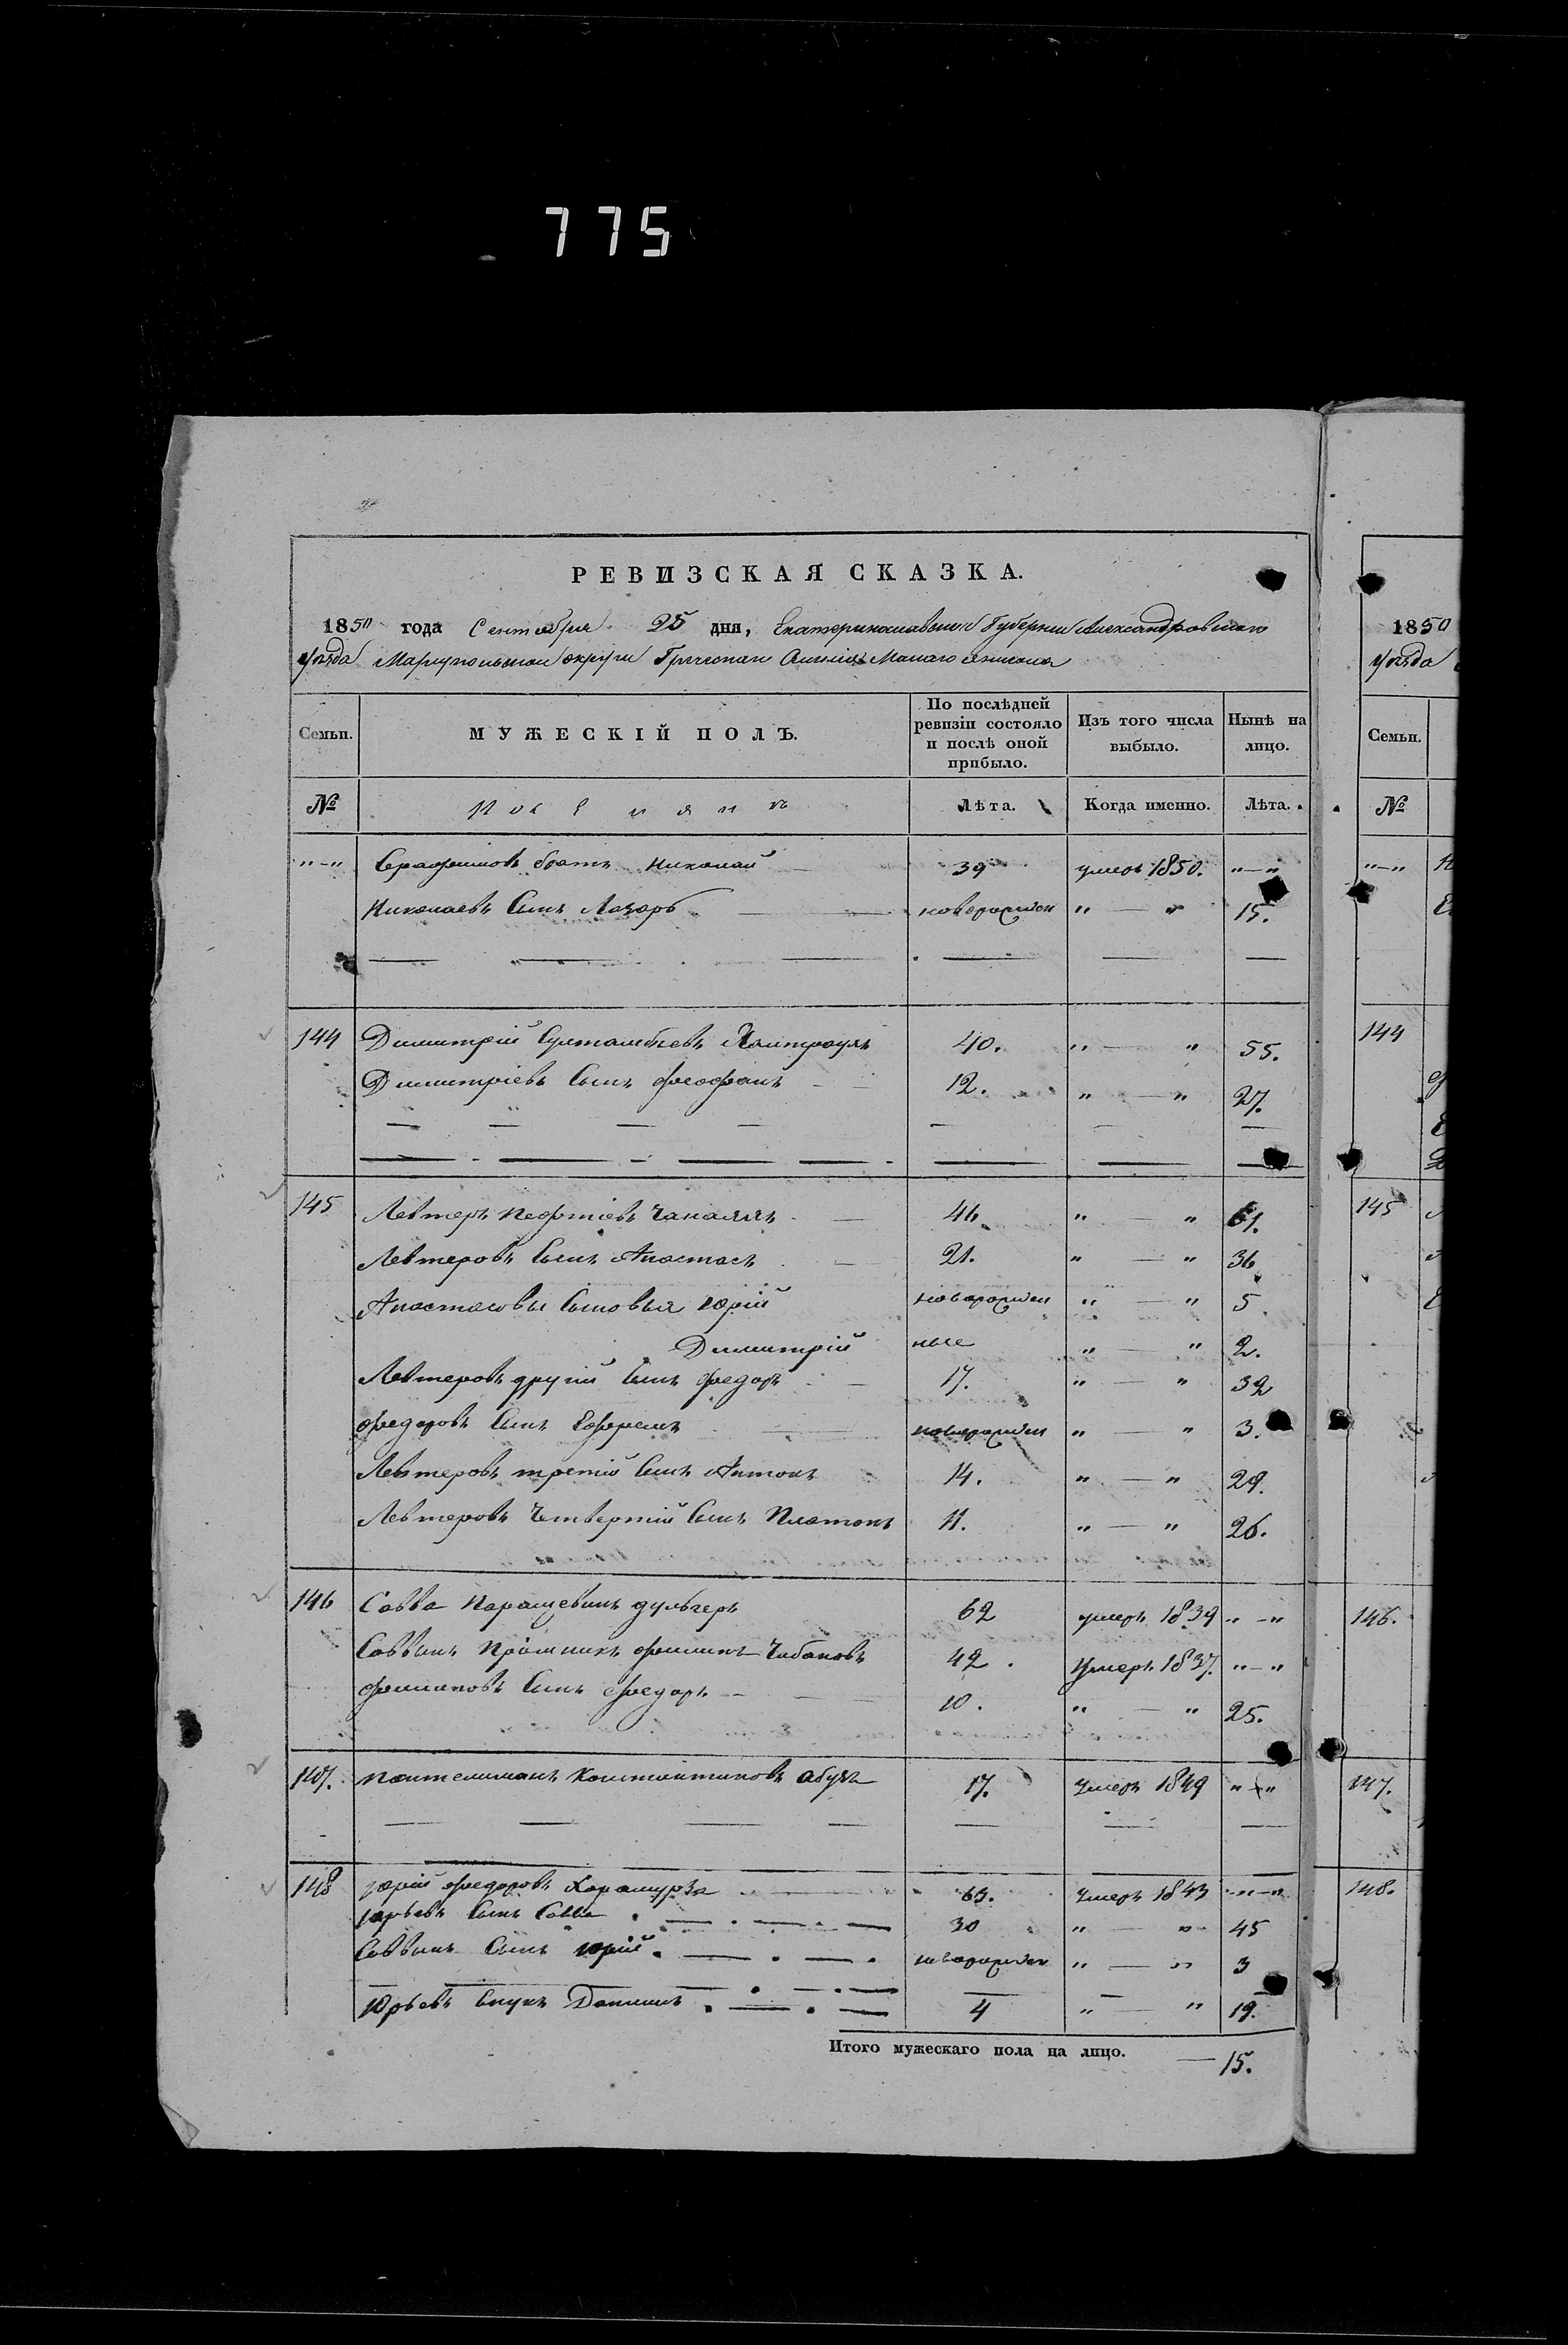 775
РЕВИЗСКАЯ СКАЗКА.
1850 года Сентября 25 дня, Екатеринославской Губернии Александровского
Уѣзда Маріупольскаго округа Греческой Малаго Янисоля
Семьи. МУЖЕСКІЙ ПОЛЪ. По послѣдней ревизіи состояло и послѣ оной прибыло. Изъ того числа выбыло. Нынѣ на лицо.
№ Поселянъ Лѣта. Когда именно. Лѣта.
"-" Серафимовъ братъ Николай 39 умеръ 1850. "-"
Николаевъ Сынъ Лазарь новорожден " — " 15.
144 Димитрій 40. " — " 55.
Димитріевъ Сынъ Феофанъ 12. " — " 27.
145 Левтеръ 46 " — " 61.
Левтеровъ Сынъ Анастасъ 21. " — " 36
Анастасовы Сыновья Юрій новорожден " — " 5
Димитрій ные " — " 2.
Левтеровъ другій Сынъ Федоръ 17. " — " 32
Федоровъ Сынъ Ефремъ новорожден " — " 3.
Левтеровъ третій Сынъ Антонъ 14. " — " 29.
Левтеровъ Четвертій Сынъ Платонъ 11. " — " 26.
146 Савва Паращевинъ дульгеръ 62 умеръ 1839 "-"
Саввинъ Пріймикъ Филипъ Чабановъ 42. Умеръ 1837. "-"
Филиповъ Сынъ Федоръ 10. " — " 25.
147. Пантелимонъ Константиновъ 17. Умеръ 1849 "-"
148 Юрій Федоровъ Карамурза 65. Умеръ 1843 "-"
Юрьевъ Сынъ Савва 30 " — " 45
Саввинъ Сынъ Юрій новорожден " — " 3
Юрьевъ внукъ Данилъ 4 " — " 19.
Итого мужескаго пола на лицо. — 15.
1850
Уѣзда
Семьи.
№
"-"
144
145
146.
147.
148.